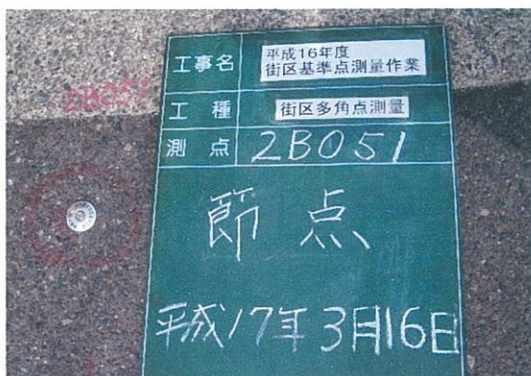 工事名 平成16年度
街区基準点測量作業
工種 街区多角点測量
測点 2B051
節点
平成17年3月16日
2B051